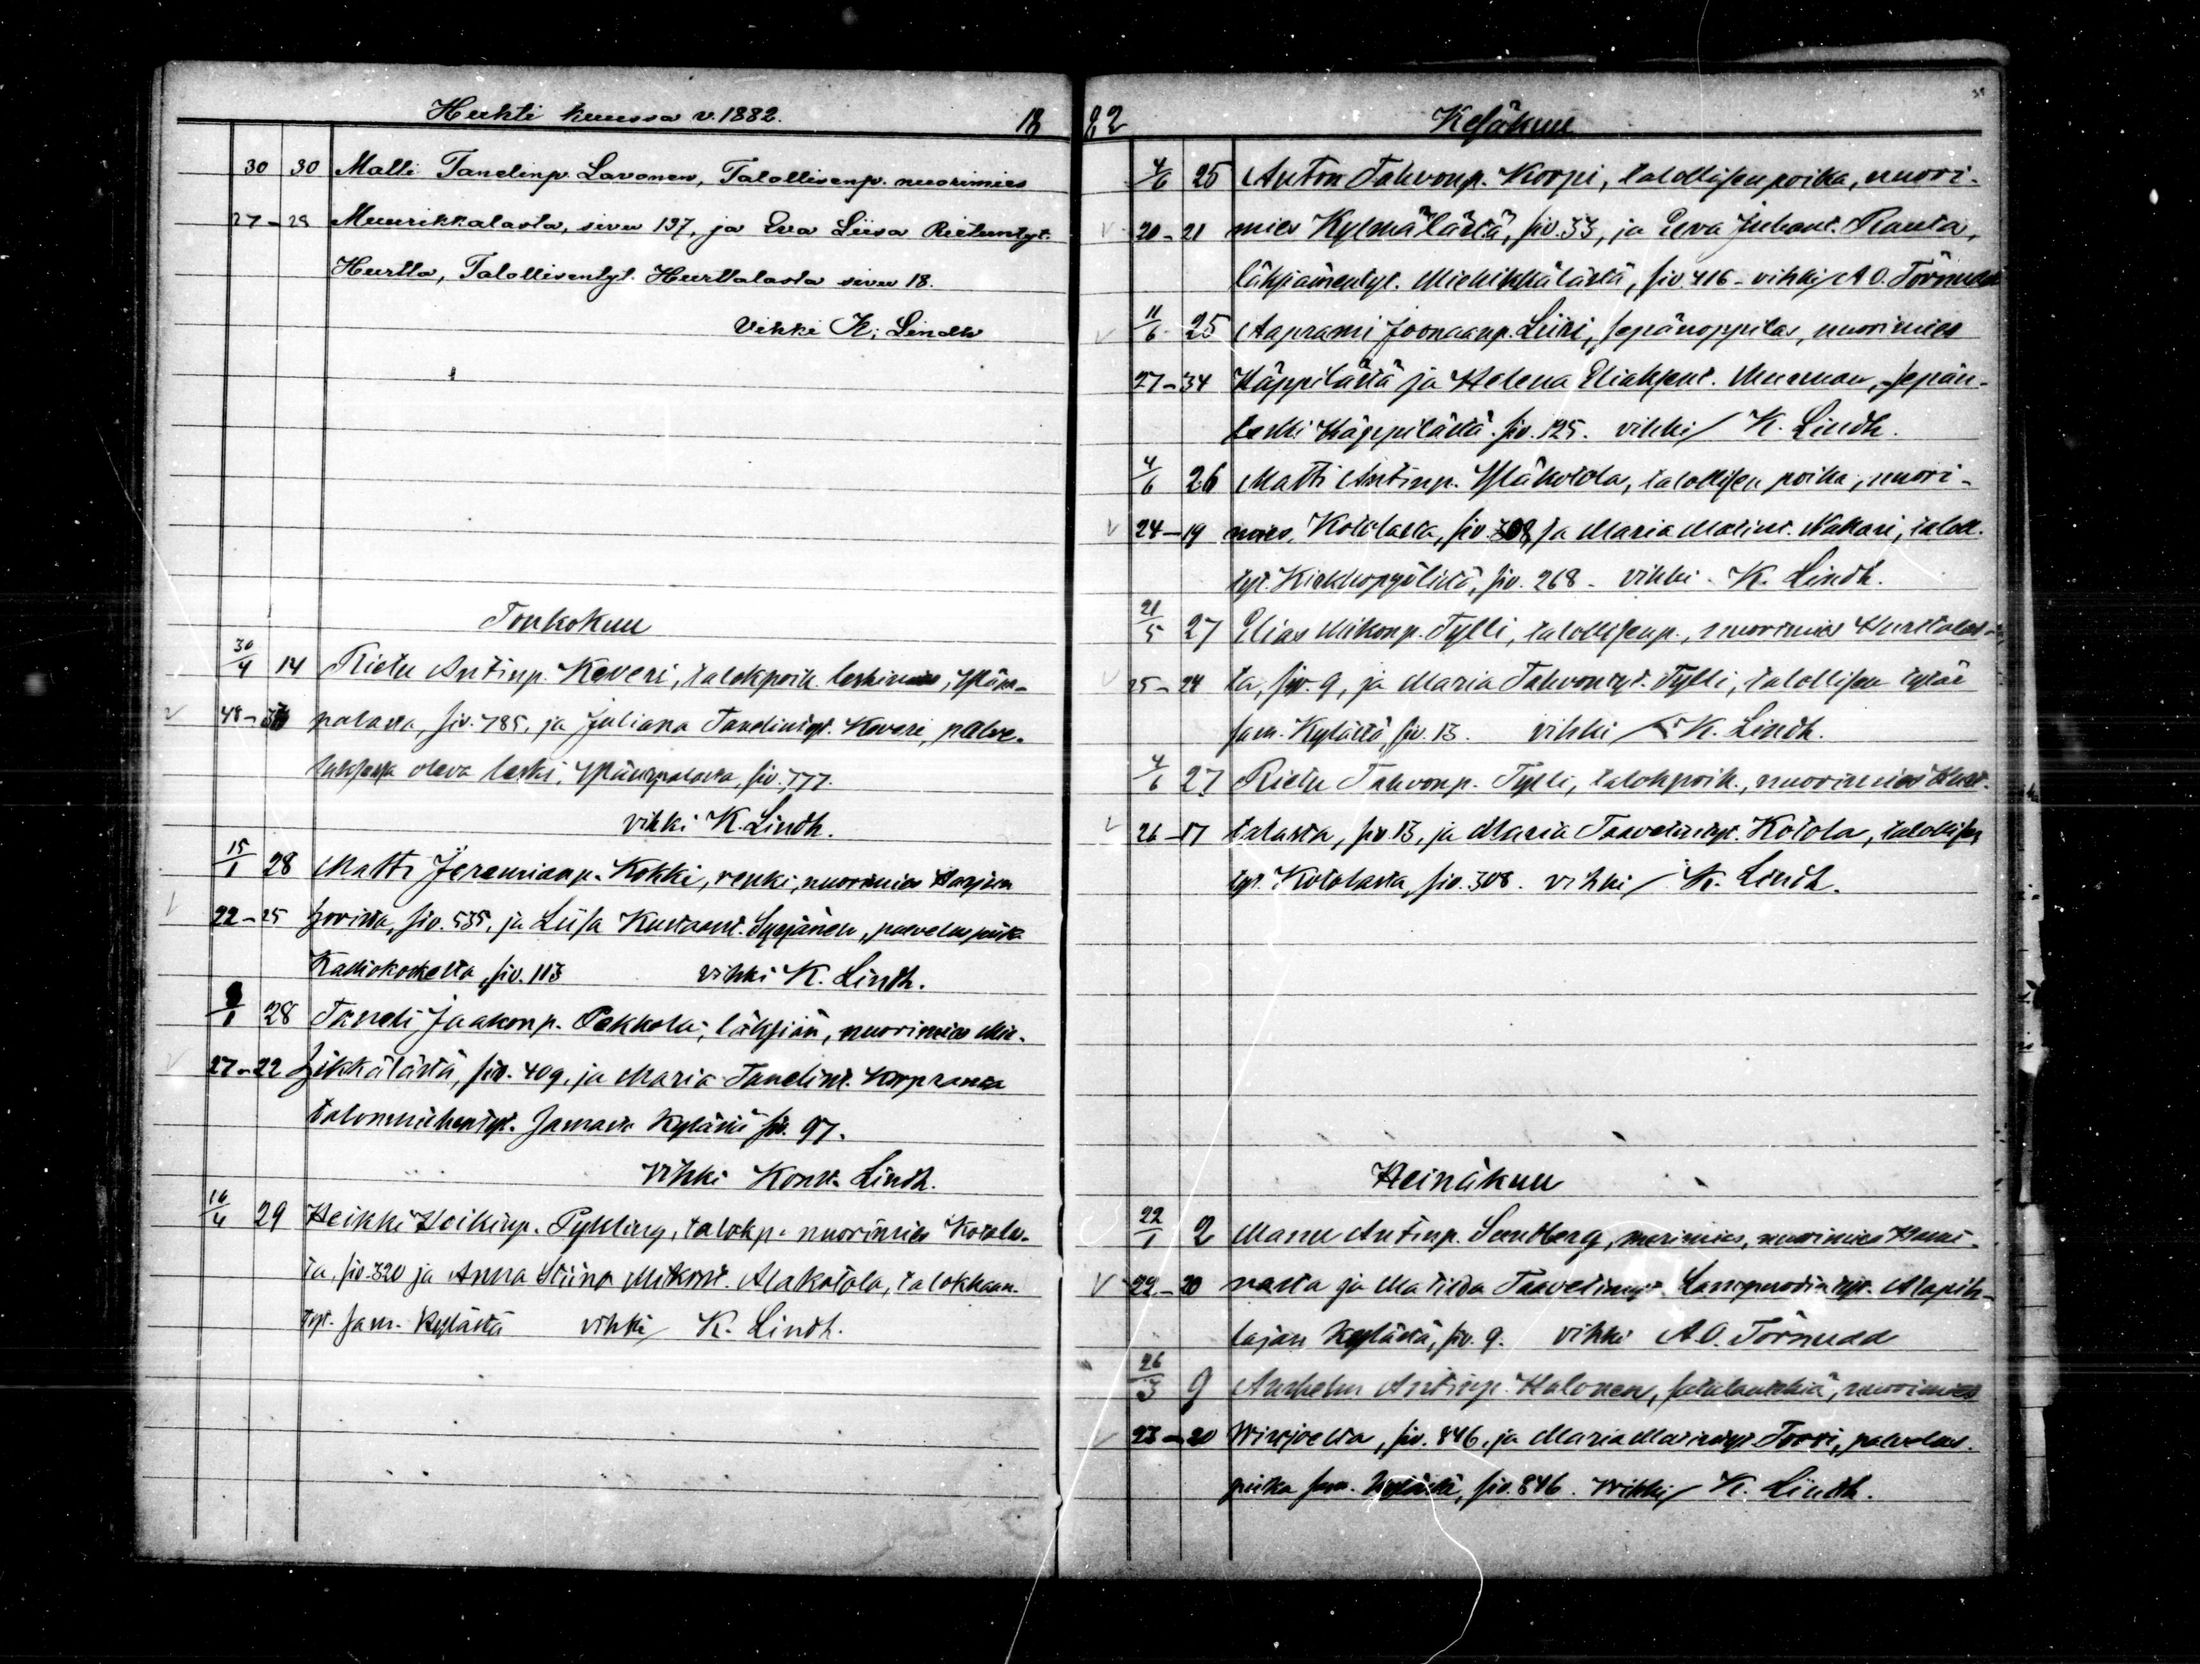 Huhti kuussa v. 1882. 18
30 30 Matti Tanelinp. Lavonen, Talollisenp. nuorimies
27-29 Muurikkalasta, sivu 137, ja Eva Liisa Rietuntyt.
Hurtta, Talollisentyt. Hurttalasta sivu 18.
Vihki K. Lindh
Toukokuu
30/4 14 Rietu Antinp. Keveri, talokpoik. leskimies, Yläm-
48- palasta, siv. 785, ja Juliana Tanelintyt. Keveri, palve-
luksessa oleva leski, Ylämpalasta, siv. 777.
vihki K. Lindh.
15/1 28 Matti Jeremiaap. Kokki, renki, nuorimies Harjun
22-25 hovista, siv. 535, ja Liisa Kustaant. Syrjänen, palveluspiika
siv. 113 vihki K. Lindh.
28 Taneli Jaakonp. Pekkola, läksiän, nuorimies Mie-
27-22 hikkälästä, siv. 409, ja Maria Tanelint.
talonmiehentyt. Samasta Kylästä siv. 97.
vihki Konst. Lindh.
16/4 29 Heikki Heikinp. Pykling, talokp. nuorimies Kotola-
ta, siv. 320 ja Anna Stiina Mikont. Alakotola, talokkaan-
tyt. sam. Kylästä vihki K. Lindh.
82 Kesäkuu
4/6 25 Anton Tahvonp. Korpi, talollisen poika, nuori-
20-21 mies Kylmälästä, siv. 33, ja Eeva Juhont. Rauta,
läksiämentyt. Miehikkälästä, siv. 416 - vihki A. O. Törnudd
11/6 25 Aaprami Joonaanp. Liiri, sepänoppilas, nuorimies
27-34 Häppilästä ja Helena Eliaksent. Muurman, sepän-
leski Häppilästä. siv. 125. vihki K. Lindh.
4/6 26 Matti Antinp. Yläkotola, talollisen poika, nuori-
24-19 mies, Kotolasta, siv. 308, ja Maria Matint. Nakari, taloll.
tyt. Kirkkopyölistä, siv. 268 - vihki K. Lindh.
21/5 27 Elias Mikonp. Tylli, talollisenp., nuorimies Hurttalas-
25-24 ta, siv. 9, ja Maria Tahvontyt. Tylli, talollisen tytär
sam. Kylästä, siv. 13. vihki K. Lindh.
4/6 27 Rietu Tahvonp. Tylli, talokpoik., nuorimies Hurt-
26-17 talasta, siv. 13, ja Maria Taavetintyt. Kotola, talollisen
tyt. Kotolasta, siv. 308. vihki K. Lindh.
Heinäkuu
22/1 2 Manu Antinp. Sundberg, merimies, nuorimies Hami-
22-20 nasta ja Matilda Taavetintyt. Alapih-
lajan Kylästä, siv. 9. vihki A. O. Törnudd
26/3 9 Anshelm Antinp. Halonen, nuorimies
23-20 Wirojoelta, siv. 846, ja Maria Matintyt. Torri, palvelus-
piika sam. Kylästä, siv. 846. Wihki K. Lindh.